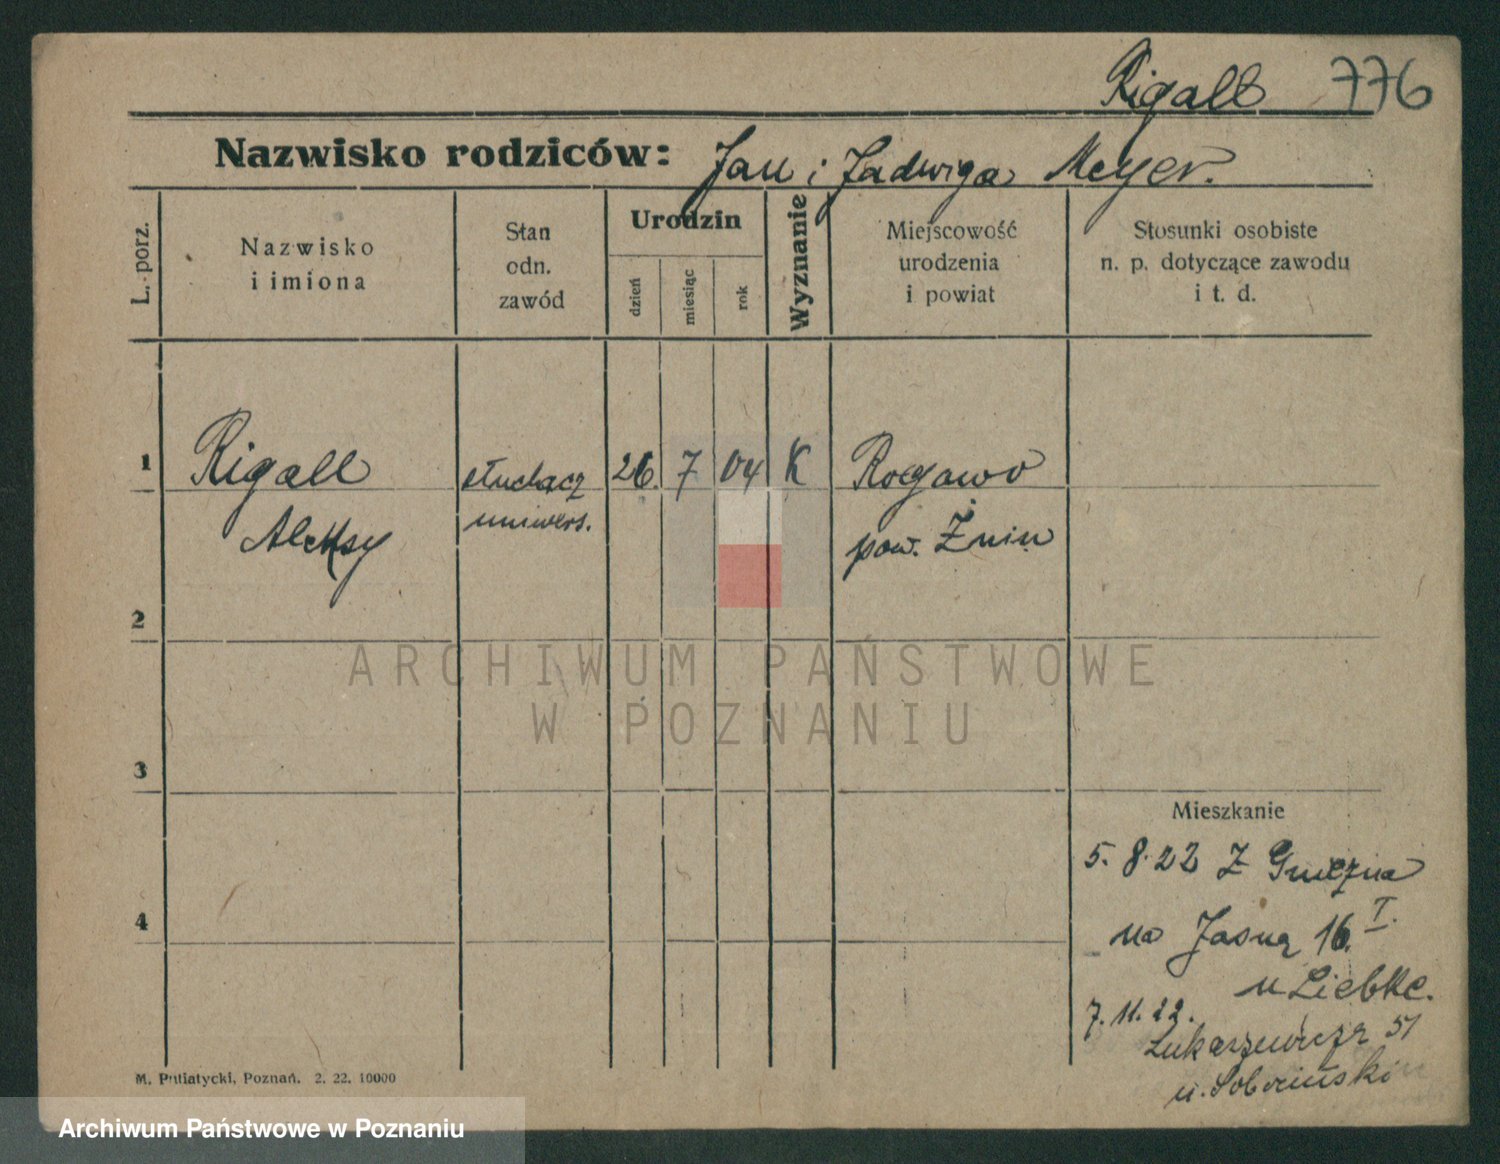 Rigall 776
Nazwisko rodziców: Jan i Jadwiga Meyer.
L. porz.
Nazwisko
i imiona
Stan
odn.
zawód
Urodzin
dzień
miesiąc
rok
Wyznanie
Miejscowość
urodzenia
i powiat
Stosunki osobiste
n. p. dotyczące zawodu
i t. d.
1 Rigall słuchacz 26. 7 04 K Rogowo
Aleksy uniwers. pow. Żnin
2
ARCHIWUM PAŃSTWOWE
W POZNANIU
3
Mieszkanie
5. 8. 22 Z Gniezna
na Jasną 16. I.
u Liebke.
4
7. 11. 22.
Łukaszewicza 51
u.
M. Putiatycki, Poznań. 2. 22. 10000
Archiwum Państwowe w Poznaniu